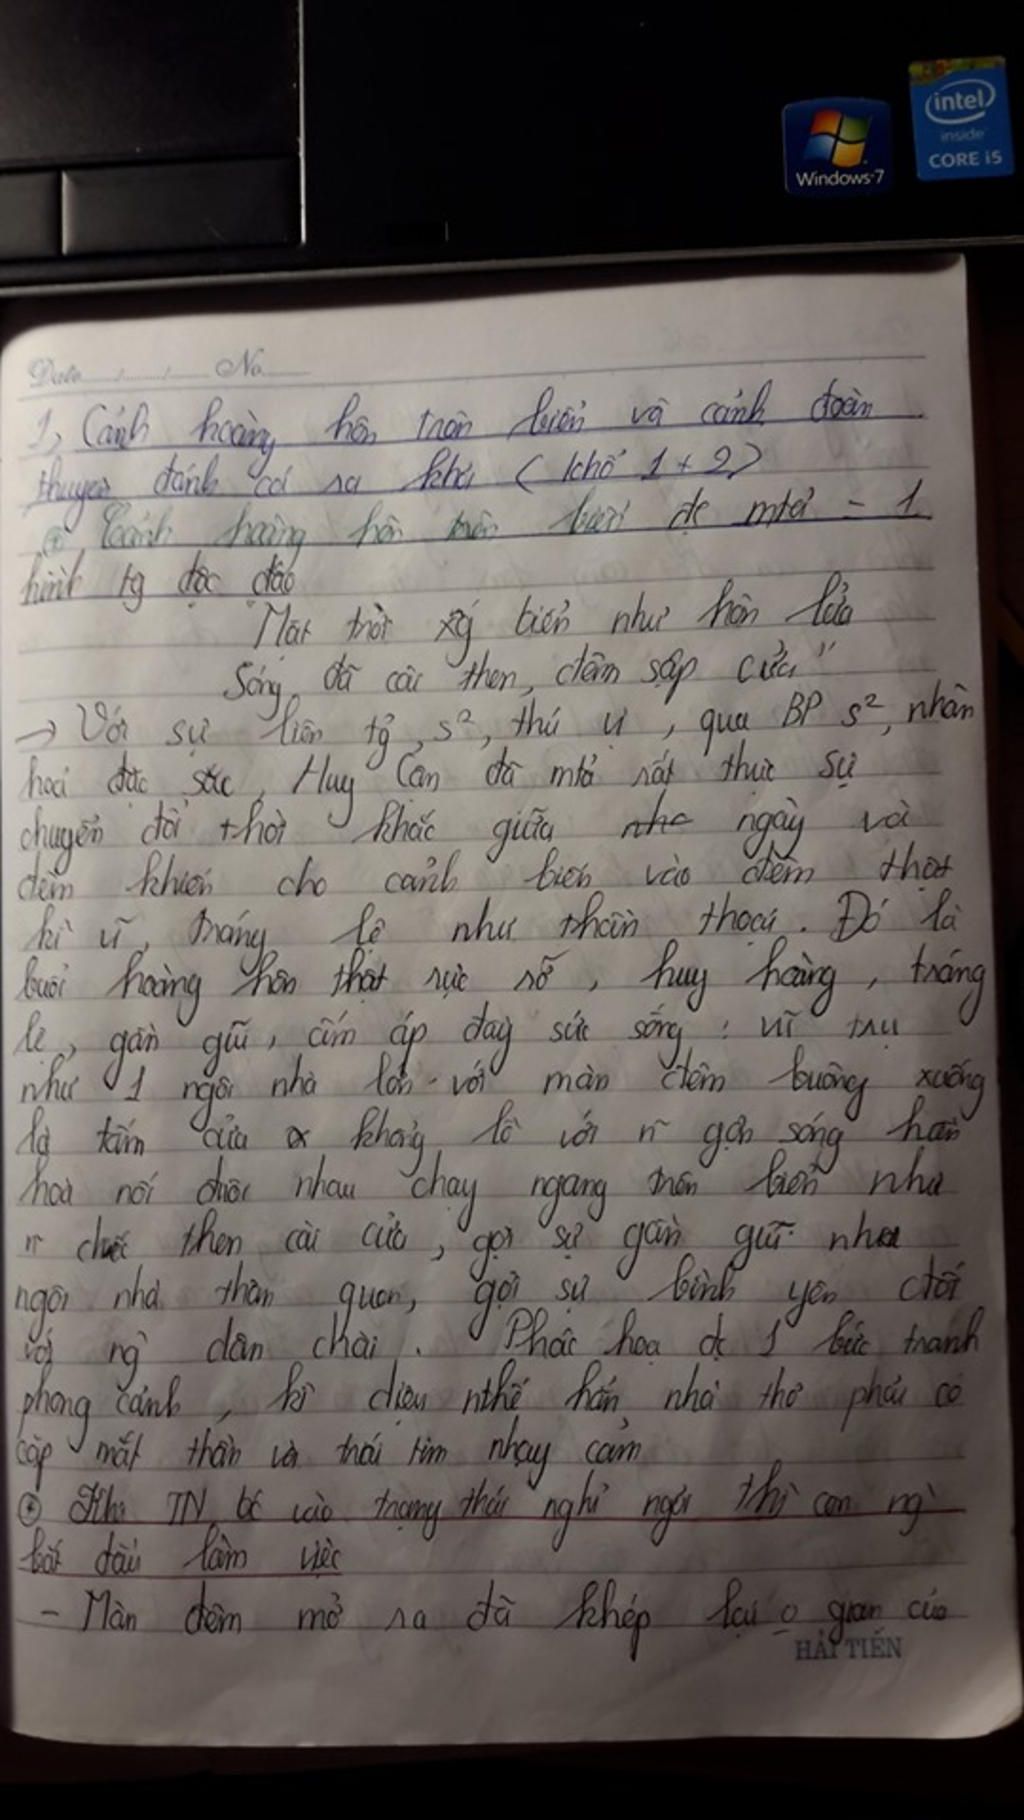 Windows 7
intel
inside
CORE i5
Date....../......./...... No......
1, Cảnh hoàng hôn trên biển và cảnh đoàn
thuyền đánh cá ra khơi (khổ 1 + 2)
* Cảnh hoàng hôn trên biển đc mtả - 1
hình tg độc đáo
Mặt trời xg biển như hòn lửa
Sóng đã cài then, đêm sập cửa"
→ Với sự liên tg, s², thú vị, qua BP s², nhân
hoá đặc sắc, Huy Cận đã mtả rất thực sự
chuyển đổi thời khắc giữa nhc ngày và
đêm khiến cho cảnh biển vào đêm thật
kì vĩ, tráng lệ như thần thoại. Đó là
buổi hoàng hôn thật rực rỡ, huy hoàng, tráng
lệ, gần gũi, ấm áp đầy sức sống: vũ trụ
như 1 ngôi nhà lớn với màn đêm buông xuống
là tấm cửa khổng lồ với n~ gợn sóng hiền
hoà nối đuôi nhau chạy ngang trên biển như
n~ chiếc then cài cửa, gợi sự gần gũi như
ngôi nhà thân quen, gợi sự bình yên đối
với ng` dân chài. Phác hoạ đc 1 bức tranh
phong cảnh, kì diệu nthế hẳn nhà thơ phải có
cặp mắt thần và trái tim nhạy cảm
* Khi TN bé vào trạng thái nghỉ ngơi thì con ng`
bắt đầu làm việc
- Màn đêm mở ra đã khép lại o gian của
HẢI TIẾN